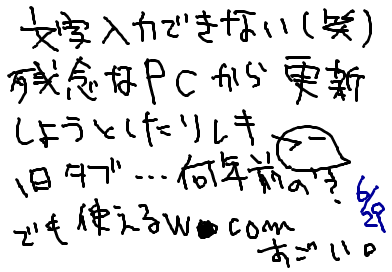 文字入力できない(笑)
残念なPCから更新
しようとしたりしき
旧タブ…何年前の?
でも使えるWocom
すごい。
6/29